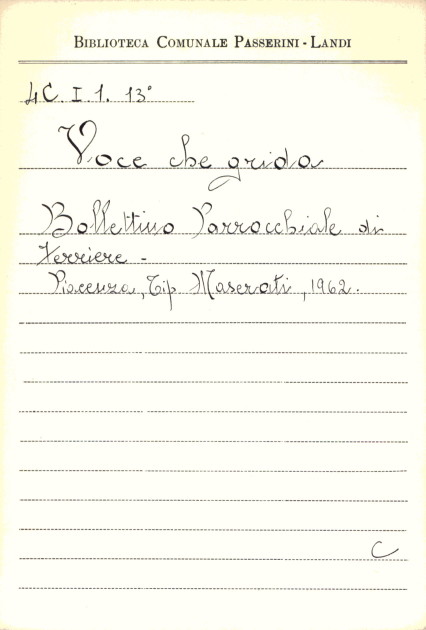 BIBLIOTECA COMUNALE PASSERINI - LANDI
4C. I. 1. 13°
Voce che grida
Bollettino Parrocchiale di
Ferriere -
Piacenza, Tip. Maserati, 1962.
C